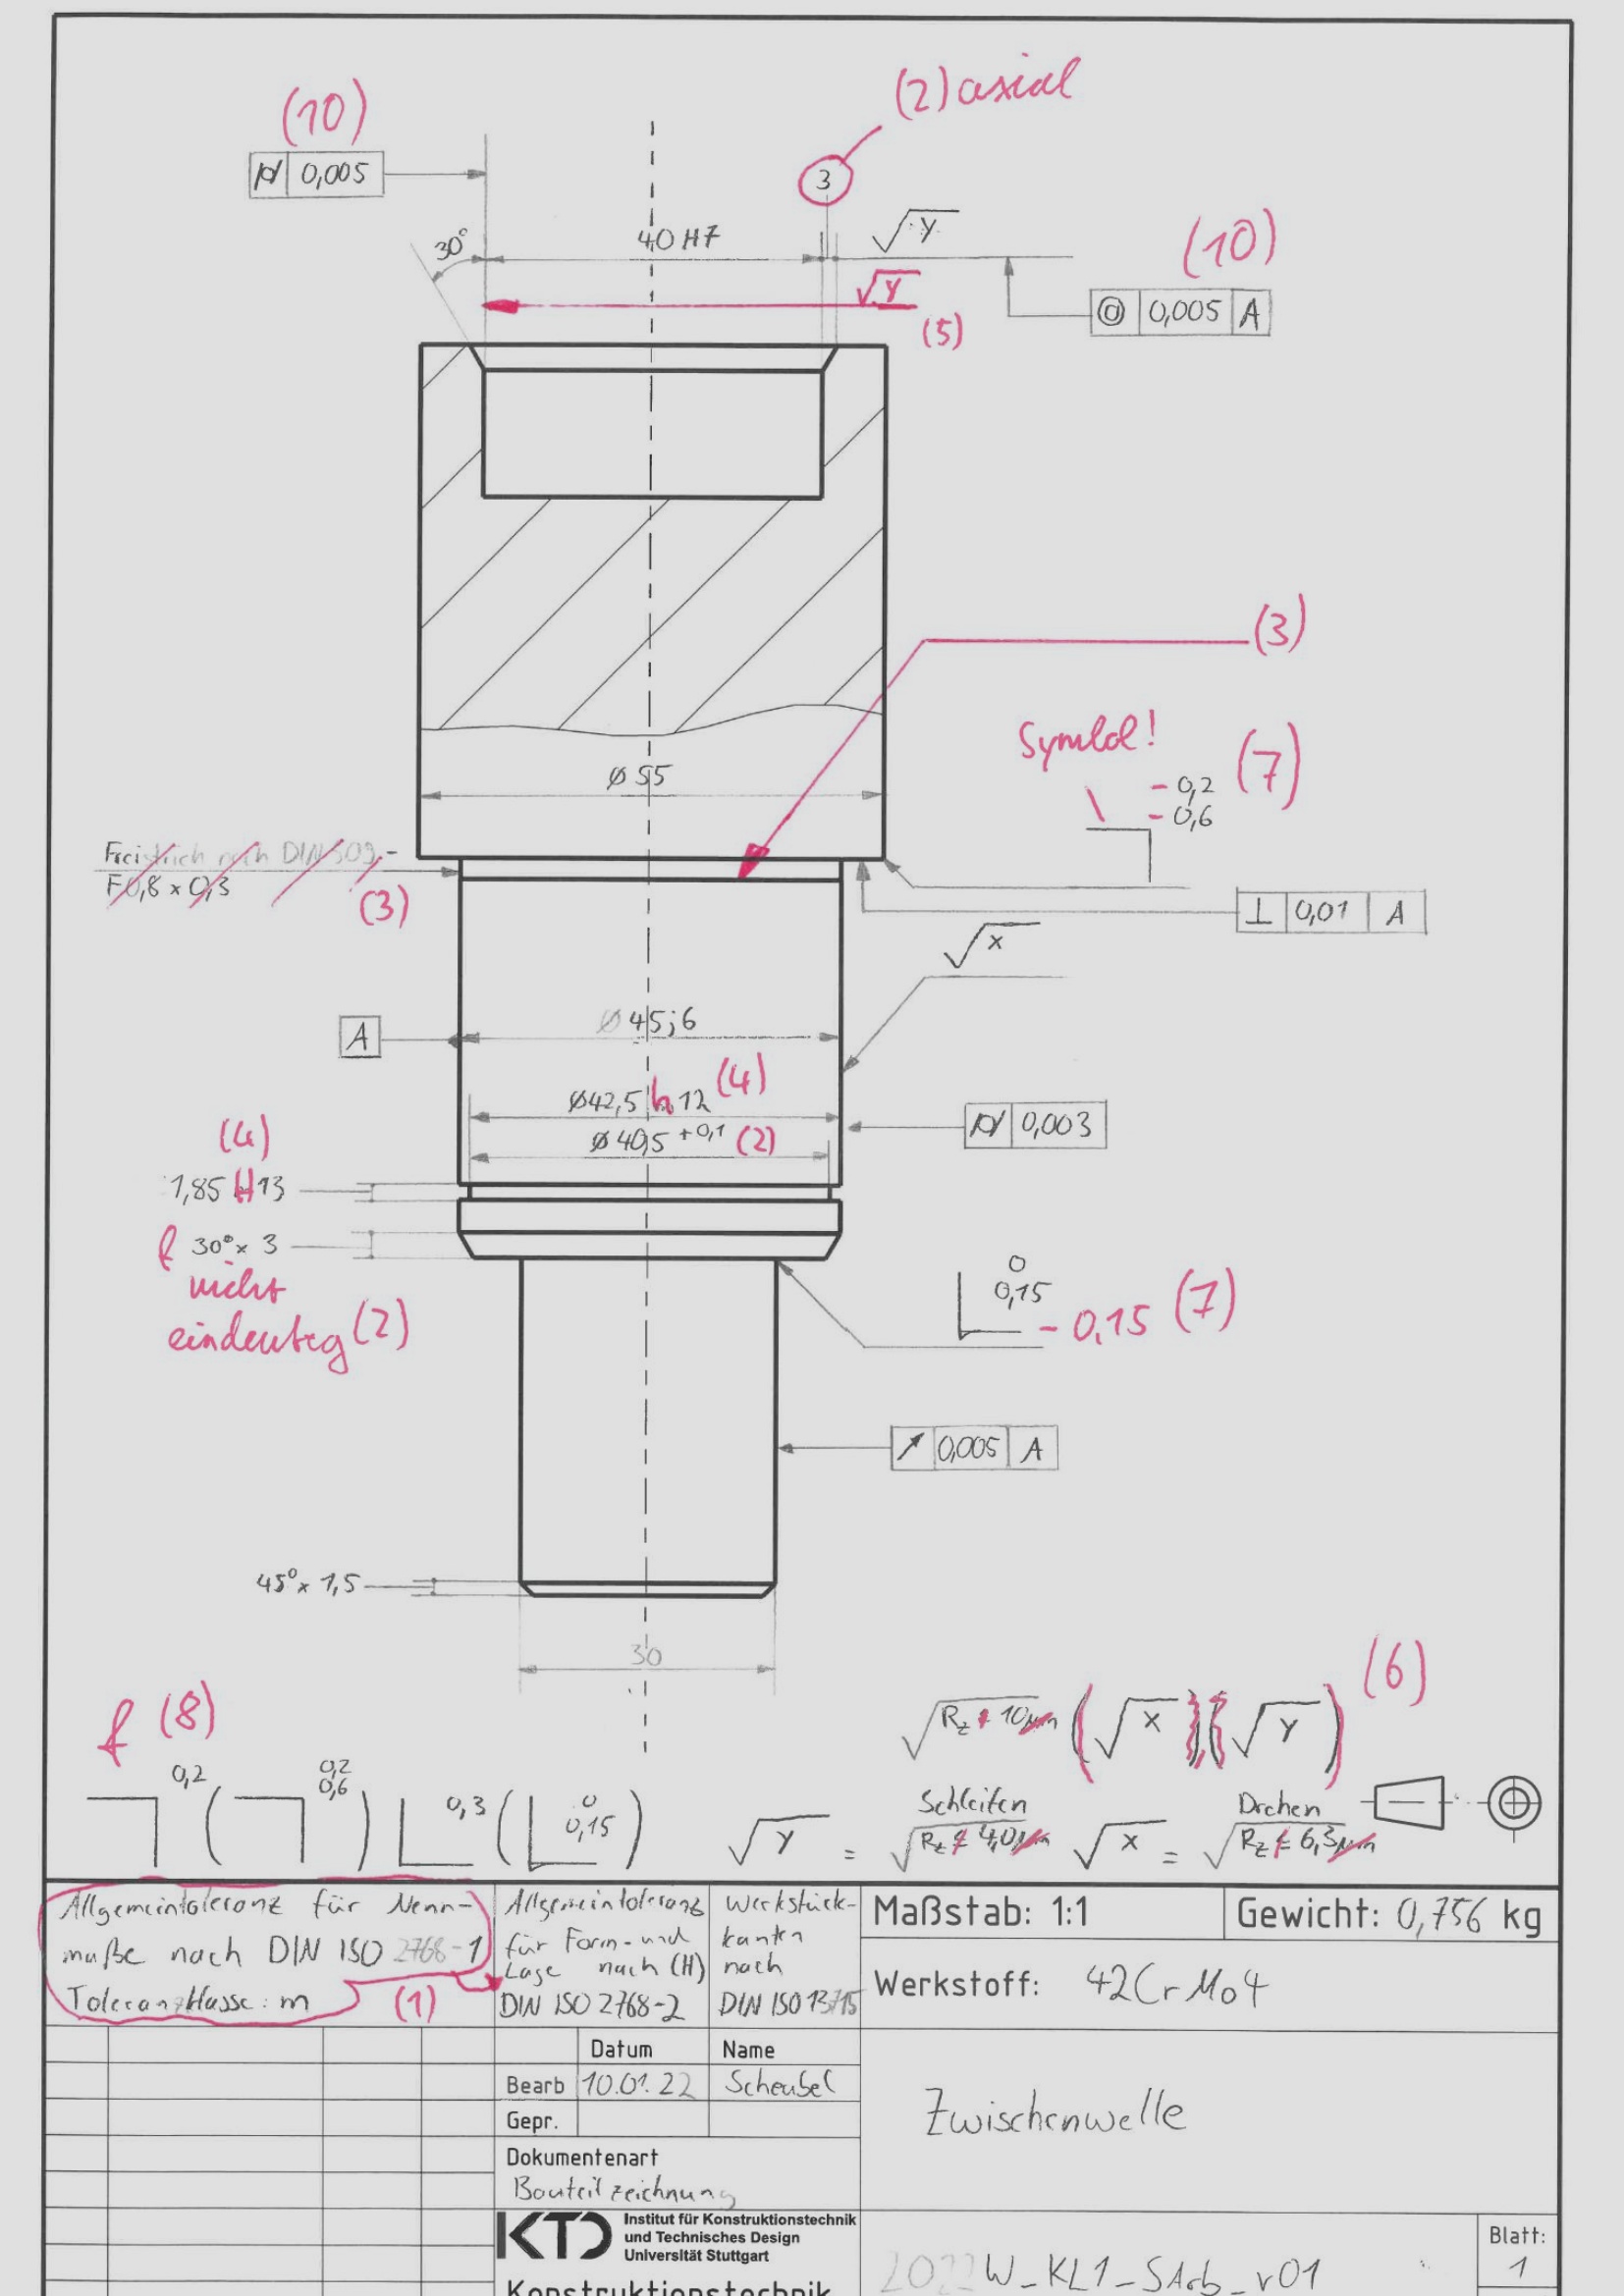 (2) axial
(10)
0,005
3
√y
30°
40 H7
(10)
√y
(5)
0,005 A
(3)
Symbol!
(7)
- 0,2
- 0,6
Ø 55
Freistich nach DIN 509-
F 0,8 x 0,3
(3)
⊥ 0,01 A
√x
A
Ø 45j6
(4)
Ø42,5 h 12
0,003
Ø 40,5 +0,1 (2)
(4)
1,85 H13
f 30° x 3
nicht
eindeutig (2)
0
0,15
- 0,15 (7)
0,005 A
45° x 1,5
30
(6)
f (8)
√Rz 10μm (√x)(√y)
0,2 (0,2
0,6) 0,3 (0
0,15)
Schleifen
Drehen
√y = √Rz ≤ 4,0μm √x = √Rz ≤ 6,3μm
Allgemeintoleranz für Nenn-
maße nach DIN ISO 2768-1
Toleranzklasse: m
(1)
Allgemeintoleranz
für Form- und
Lage nach (H)
DIN ISO 2768-2
Werkstück-
kanten
nach
DIN ISO 13715
Maßstab: 1:1
Gewicht: 0,756 kg
Werkstoff: 42CrMo4
Datum Name
Bearb 10.01.22 Scheubel
Gepr.
Dokumentenart
Bauteilzeichnung
Zwischenwelle
KTD
Institut für Konstruktionstechnik
und Technisches Design
Universität Stuttgart
Konstruktionstechnik
2022W_KL1_SArb_v01
Blatt:
1